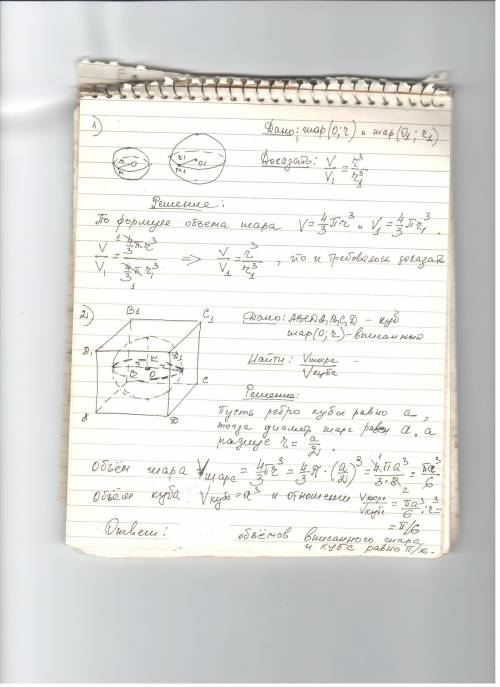 1)
Дано: шар (O; r) и шар (O₁; r₁)
Доказать: V/V₁ = r³/r₁³
Решение:
По формуле объема шара V = 4/3 πr³ и V₁ = 4/3 πr₁³.
V/V₁ = (4/3 πr³)/(4/3 πr₁³) => V/V₁ = r³/r₁³, что и требовалось доказать
2)
Дано: ABCDA₁B₁C₁D₁ – куб
шар (O; r) – вписанный
Найти: Vшара/Vкуба –
Решение:
Пусть ребро куба равно a,
тогда диаметр шара равен a, а
радиус r = a/2.
Объём шара Vшара = 4/3 πr³ = 4/3 π · (a/2)³ = 4πa³/3·8 = πa³/6
Объём куба Vкуба = a³ и отношение Vшара/Vкуба = πa³/6 :
= π/6
Ответ: объёмов вписанного шара
и куба равно π/6.